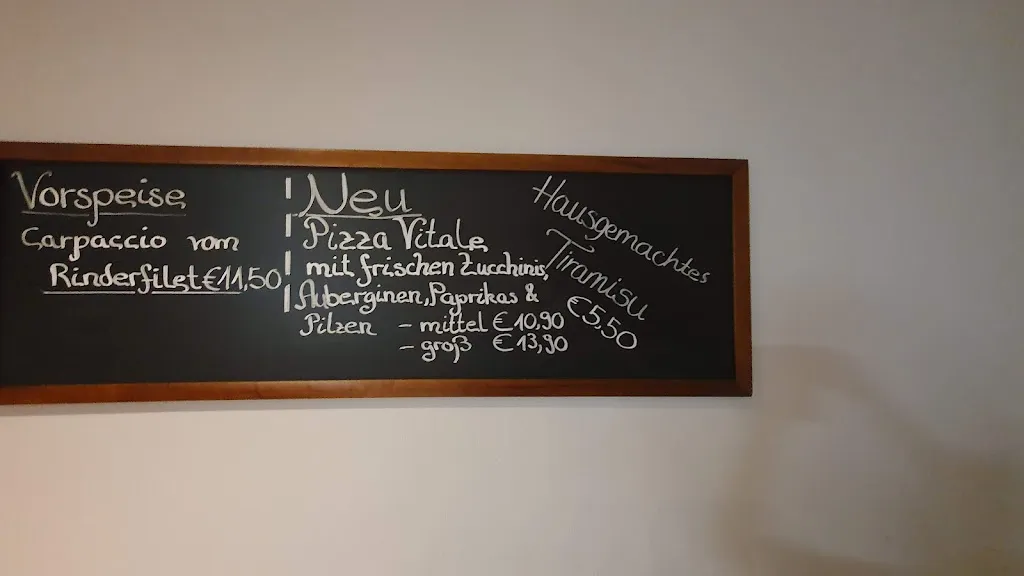 Vorspeise
Carpaccio vom
Rinderfilet €11,50
Neu
Pizza Vitale
mit frischen Zucchinis,
Auberginen, Paprikas &
Pilzen - mittel € 10,90
- groß € 13,90
Hausgemachtes
Tiramisu
€5,50